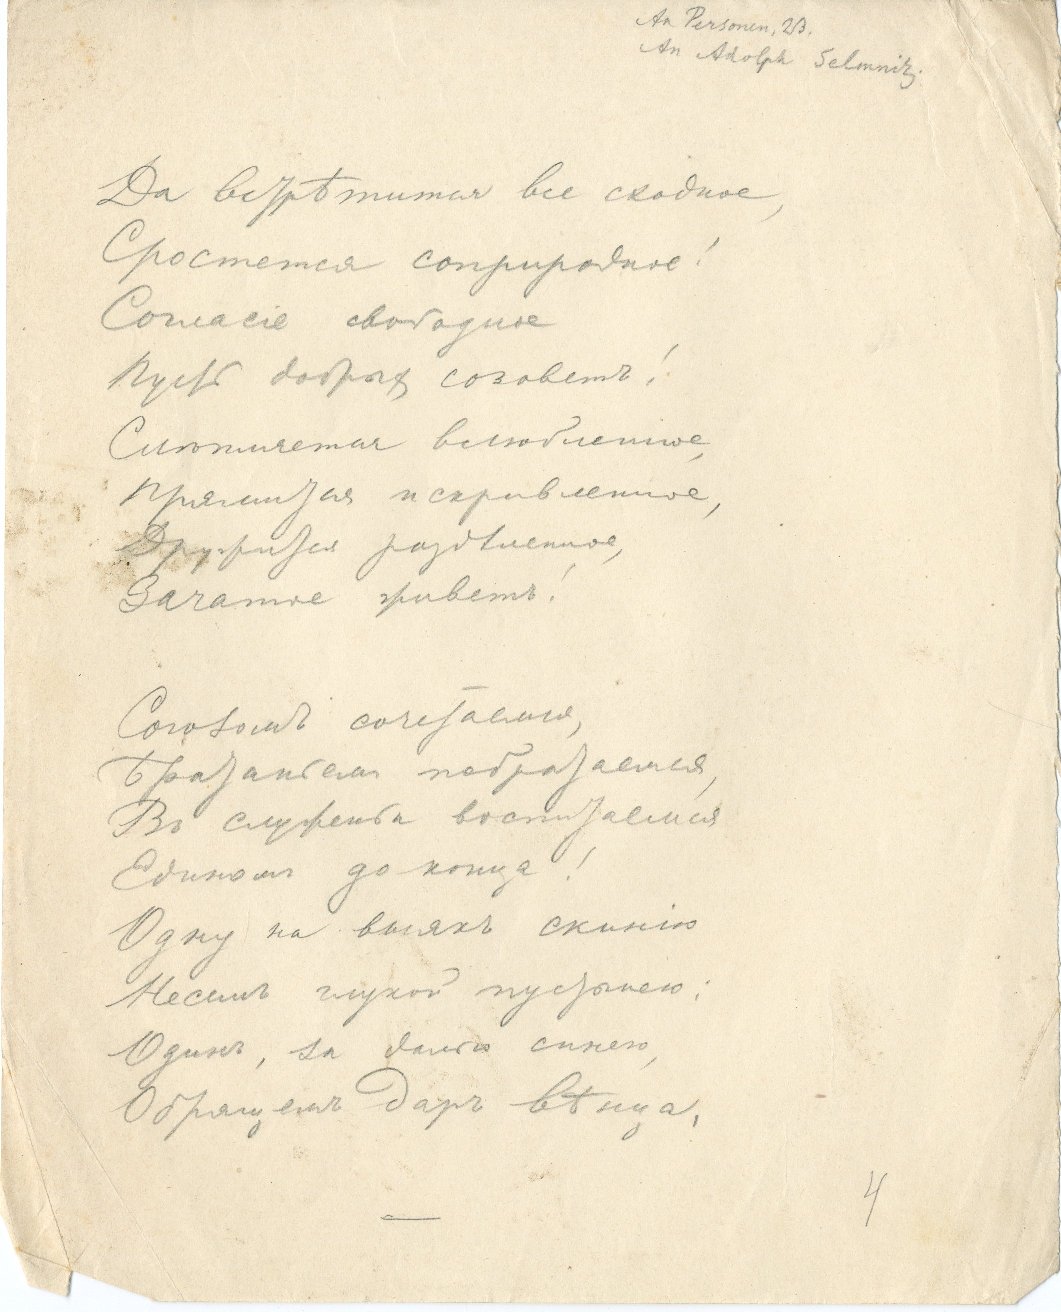 An Personen, 2B.
An Adolph Selmnitz.
Да встрѣтится все сходное,
Сростется соприродное!
Согласіе свободное
Пусть добрыя созоветъ!
Слюпляется влюбленное,
Прямится искривленное,
Дружится раздѣленное,
Зачатое живетъ!
Союзомъ сочетаемся,
Братаньемъ побратаемся,
Въ служеньи воспитаемся
Единомъ до конца!
Одну на выяхъ скинію
Несемъ глухой пустынею:
Одинъ, за далью синею,
Обрящемъ даръ вѣнца.
4